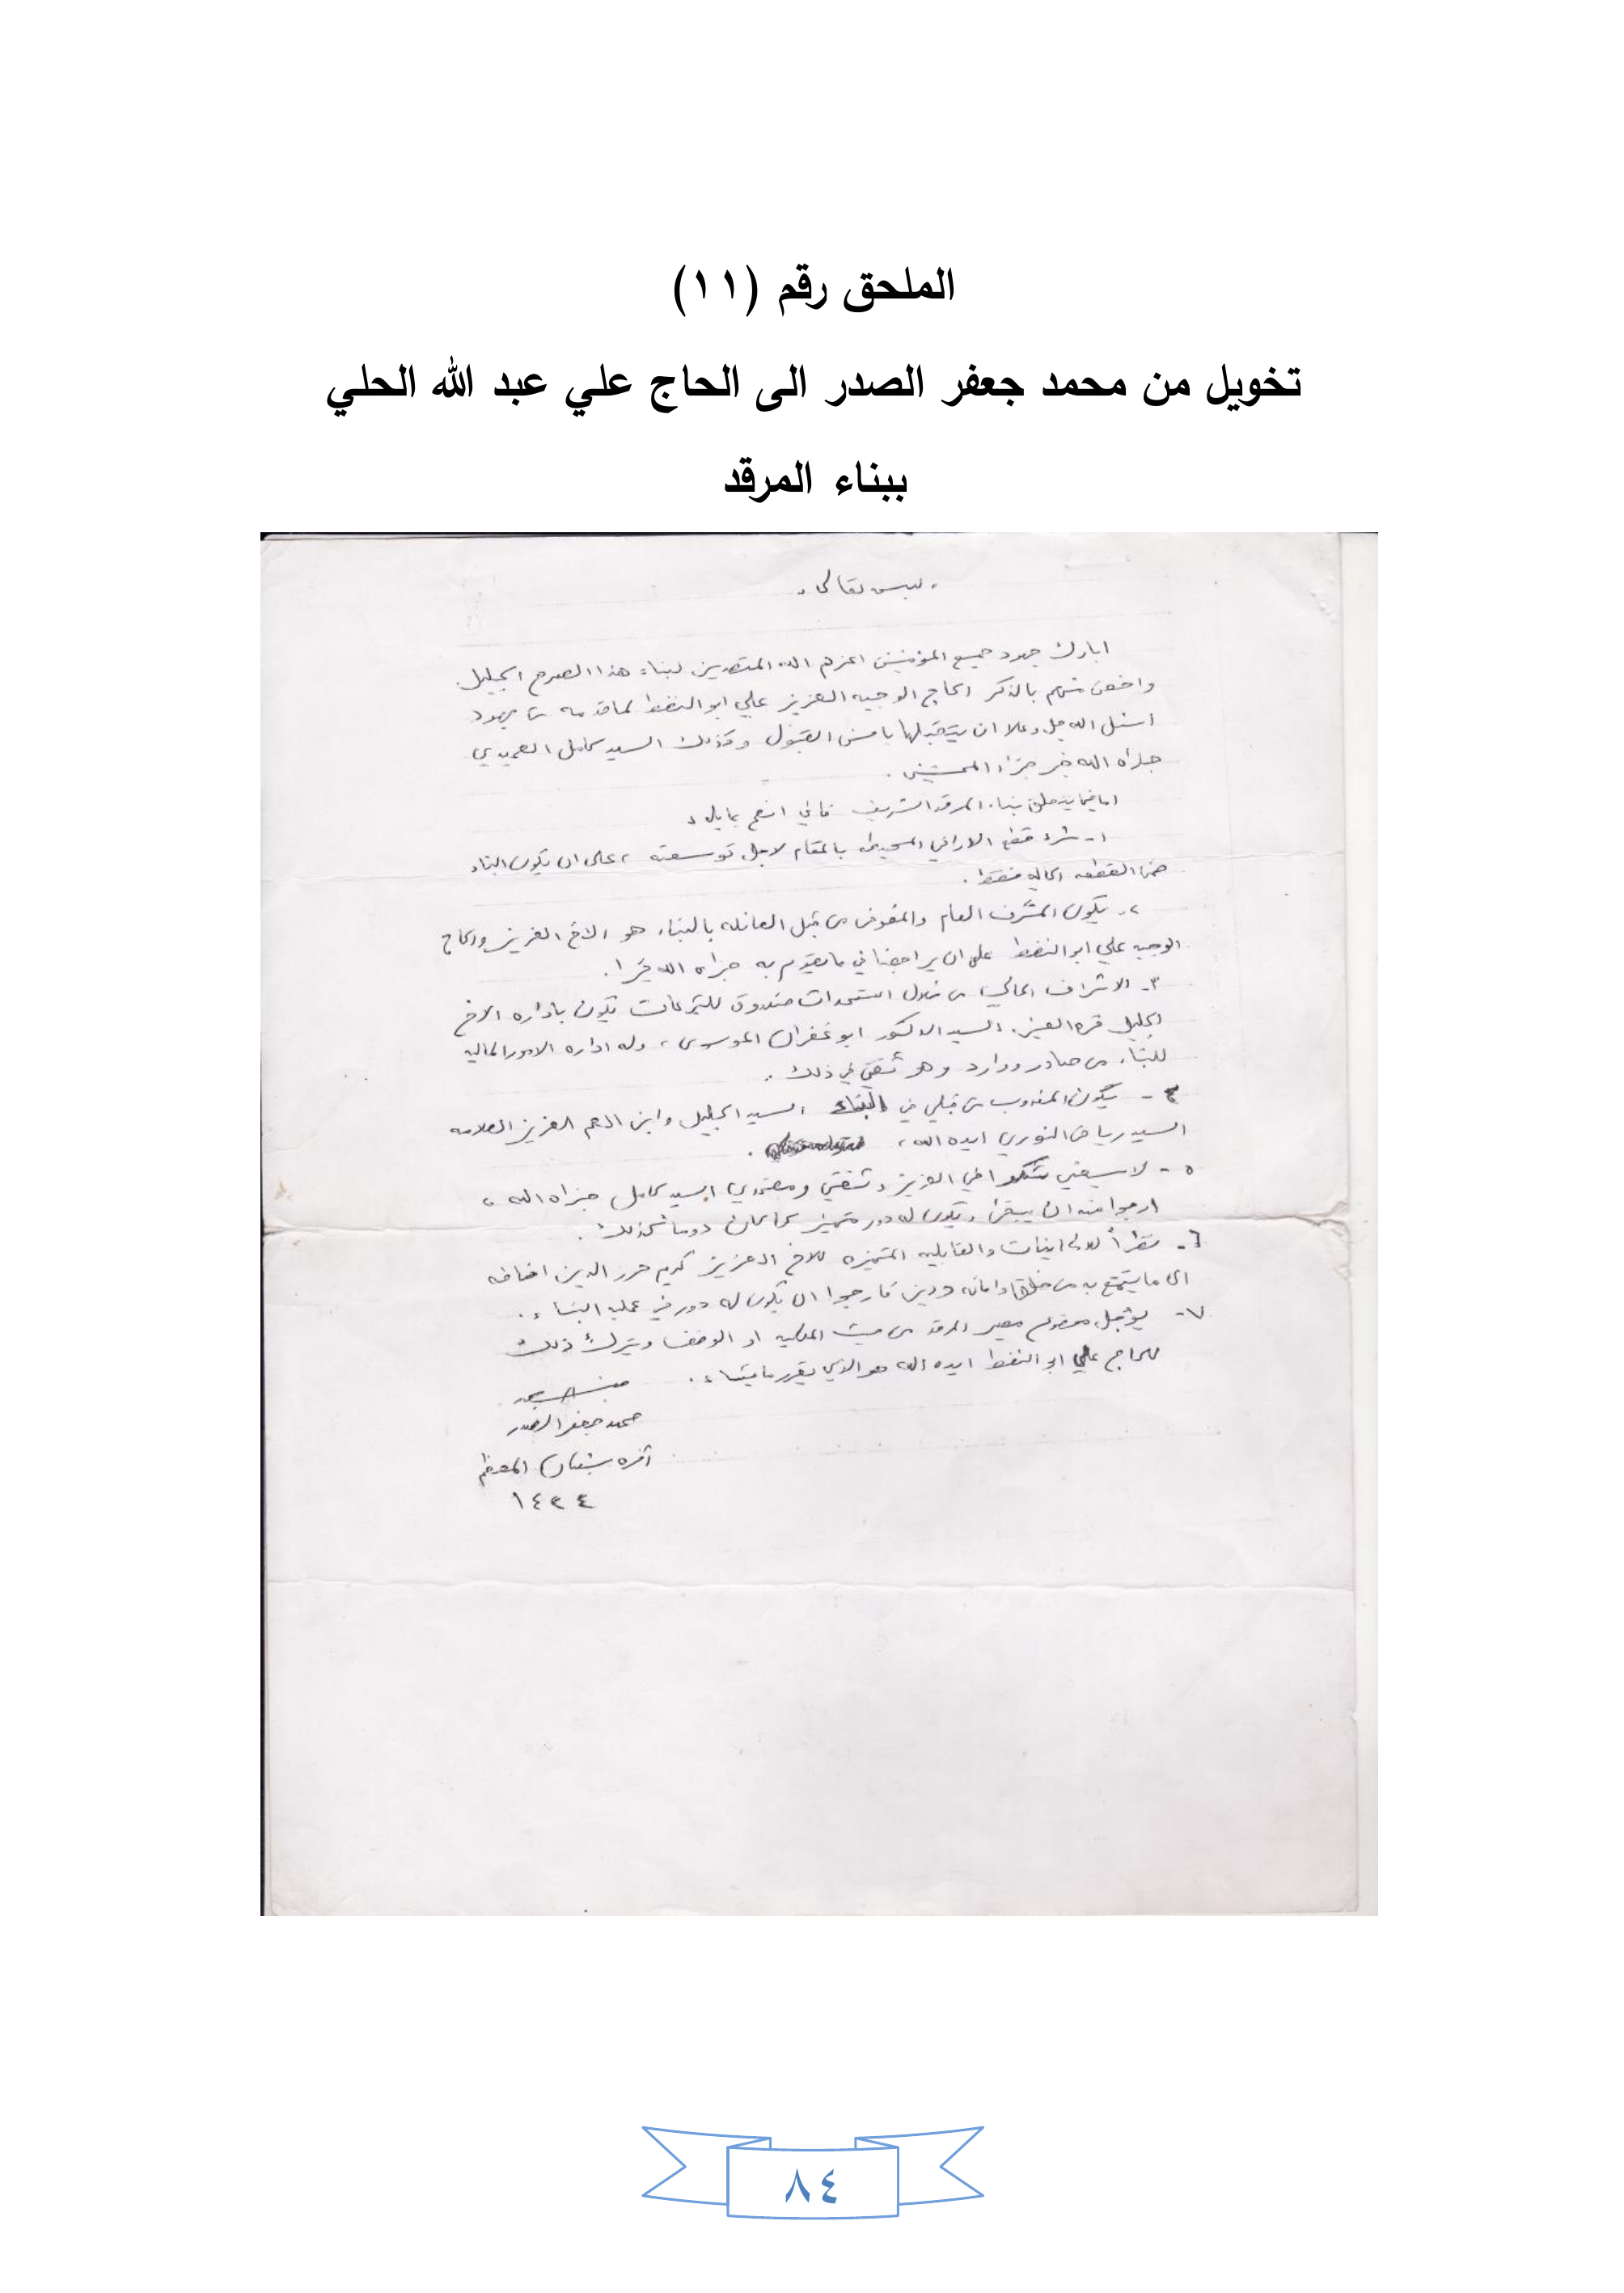 الملحق رقم (١١)
تخويل من محمد جعفر الصدر الى الحاج علي عبد الله الحلي
ببناء المرقد
بسمه تعالى
ابارك جهود جميع المؤمنين اعزهم الله المتصدين لبناء هذا الصرح الجليل
واخص منهم بالذكر الحاج الوجيه العزيز علي ابو النفط لما قدمه من جهود
اسئل الله جل وعلا ان يتقبلها باحسن القبول وكذلك السيد كامل العميدي
جزاه الله خير جزاء المحسنين .
اما فيما يتعلق ببناء المرقد الشريف فاني انصح بما يلي
١- شراء قطع الاراضي المحيطه بالمقام لاجل توسعته ، على ان يكون البناء
ضمن القطعه الحاليه فقط .
٢- يكون المشرف العام والمفوض من قبل العائله بالبناء هو الاخ العزيز والحاج
الوجيه علي ابو النفط على ان يراجعنا في ما يقوم به جزاه الله خيرا .
٣- الاشراف المالي من خلال استحداث صندوق للتبرعات يكون باداره الاخ
الجليل قره العين السيد الدكتور ابو غفران الموسوي ، وله اداره الامور الماليه
للبناء من صادر ووارد وهو ثقتي في ذلك .
٤- يكون المندوب من قبلي في البناء السيد الجليل وابن العم العزيز العلامه
السيد رياض النوري ايده الله ، .
٥- لا يسعني اخي العزيز وثقتي ومعتمدي السيد كامل جزاه الله ،
ارجوا منه ان يبقى ويكون له دور متميز كما كان دوما كذلك .
٦- نظراً والقابليه المتميزه للاخ العزيز كريم حرز الدين اضافه
الى ما يتمتع به من خلق وامانه ودين فارجوا ان يكون له دور في عمليه البناء .
٧- يؤجل موضوع مصير المرقد من حيث الملكيه او الوقف ويترك ذلك
للحاج علي ابو النفط ايده الله هو الذي يقرر ما يشاء .
محمد جعفر الصدر
شعبان المعظم
١٤٣٤
٨٤